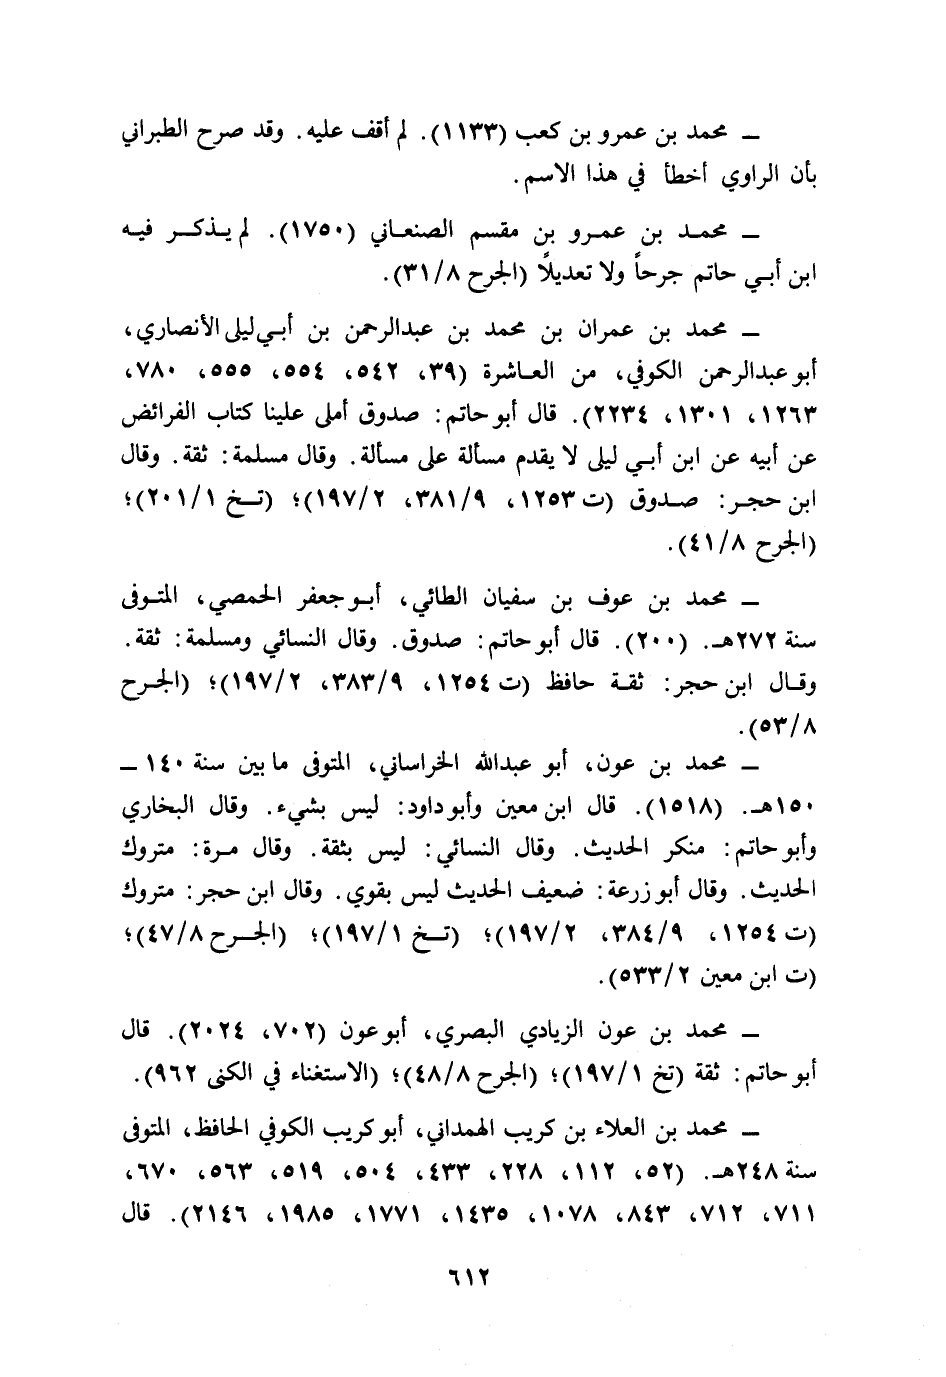 ــ محمد بن عمرو بن كعب (١١٣٣). لم أقف عليه. وقد صرح الطبراني
بأن الراوي أخطأ في هذا الاسم.
ــ محمد بن عمرو بن مقسم الصنعاني (١٧٥٠). لم يذكر فيه
ابن أبي حاتم جرحاً ولا تعديلاً (الجرح ٣١/٨).
ــ محمد بن عمران بن محمد بن عبدالرحمن بن أبي ليلى الأنصاري،
أبو عبدالرحمن الكوفي، من العاشرة (٣٩، ٥٤٢، ٥٥٤، ٥٥٥، ٧٨٠،
١٢٦٣، ١٣٠١، ٢٢٣٤). قال أبو حاتم: صدوق أملى علينا كتاب الفرائض
عن أبيه عن ابن أبي ليلى لا يقدم مسألة على مسألة. وقال مسلمة: ثقة. وقال
ابن حجر: صدوق (ت ١٢٥٣، ٣٨١/٩، ١٩٧/٢)؛ (تخ ٢٠١/١)؛
(الجرح ٤١/٨).
ــ محمد بن عوف بن سفيان الطائي، أبو جعفر الحمصي، المتوفى
سنة ٢٧٢هـ. (٢٠٠). قال أبو حاتم: صدوق. وقال النسائي ومسلمة: ثقة.
وقال ابن حجر: ثقة حافظ (ت ١٢٥٤، ٣٨٣/٩، ١٩٧/٢)؛ (الجرح
٥٣/٨).
ــ محمد بن عون، أبو عبدالله الخراساني، المتوفى ما بين سنة ١٤٠ ــ
١٥٠هـ. (١٥١٨). قال ابن معين وأبو داود: ليس بشيء. وقال البخاري
وأبو حاتم: منكر الحديث. وقال النسائي: ليس بثقة. وقال مرة: متروك
الحديث. وقال أبو زرعة: ضعيف الحديث ليس بقوي. وقال ابن حجر: متروك
(ت ١٢٥٤، ٣٨٤/٩، ١٩٧/٢)؛ (تخ ١٩٧/١)؛ (الجرح ٤٧/٨)؛
(ت ابن معين ٥٣٣/٢).
ــ محمد بن عون الزيادي البصري، أبو عون (٧٠٢، ٢٠٢٤). قال
أبو حاتم: ثقة (تخ ١٩٧/١)؛ (الجرح ٤٨/٨)؛ (الاستغناء في الكنى ٩٦٢).
ــ محمد بن العلاء بن كريب الهمداني، أبو كريب الكوفي الحافظ، المتوفى
سنة ٢٤٨هـ. (٥٢، ١١٢، ٢٢٨، ٤٣٣، ٥٠٤، ٥١٩، ٥٦٣، ٦٧٠،
٧١١، ٧١٢، ٨٤٣، ١٠٧٨، ١٤٣٥، ١٧٧١، ١٩٨٥، ٢١٤٦). قال
٦١٢